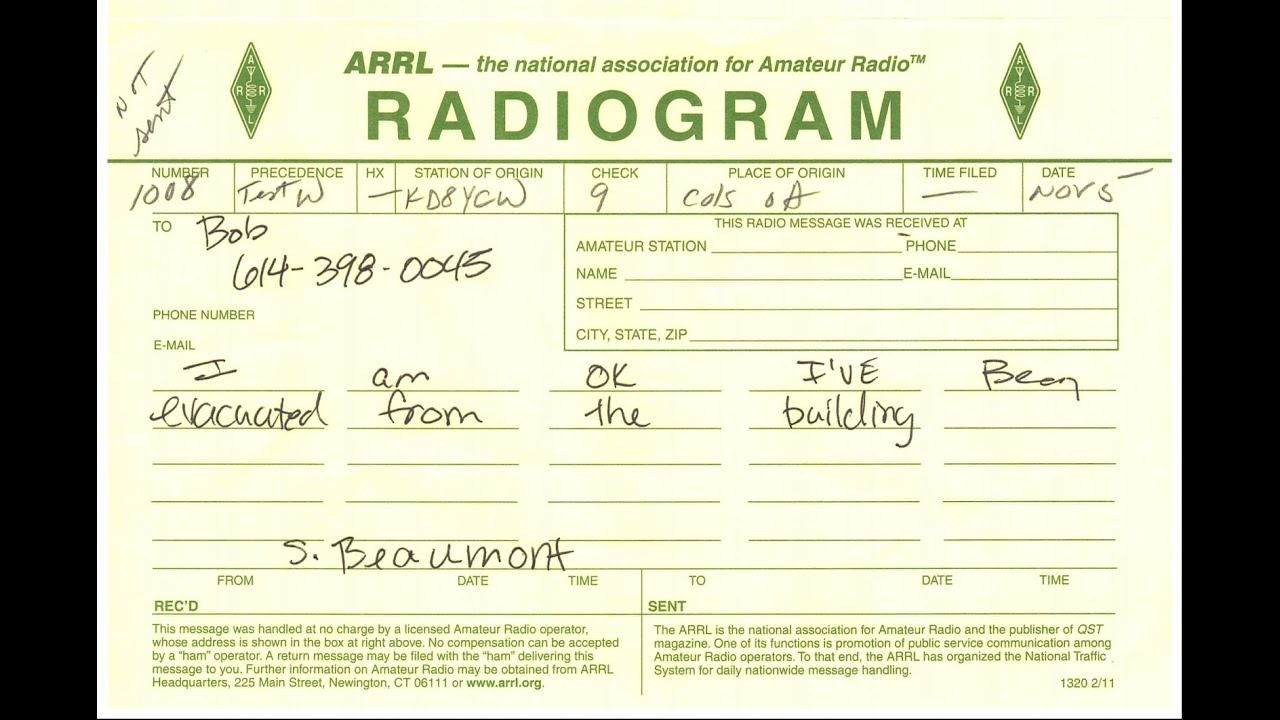 NOT
sent
ARRL — the national association for Amateur Radio™
RADIOGRAM
A
R R
L
A
R R
L
NUMBER PRECEDENCE HX STATION OF ORIGIN CHECK PLACE OF ORIGIN TIME FILED DATE
1008 Test W — KD8YCW 9 Cols oA — NOV 5
TO Bob
614-398-0045
PHONE NUMBER
E-MAIL
THIS RADIO MESSAGE WAS RECEIVED AT
AMATEUR STATION PHONE
NAME E-MAIL
STREET
CITY, STATE, ZIP
I am OK I'VE Been
evacuated from the building
S. Beaumont
FROM DATE TIME TO DATE TIME
REC'D SENT
This message was handled at no charge by a licensed Amateur Radio operator,
whose address is shown in the box at right above. No compensation can be accepted
by a “ham” operator. A return message may be filed with the “ham” delivering this
message to you. Further information on Amateur Radio may be obtained from ARRL
Headquarters, 225 Main Street, Newington, CT 06111 or www.arrl.org.
The ARRL is the national association for Amateur Radio and the publisher of QST
magazine. One of its functions is promotion of public service communication among
Amateur Radio operators. To that end, the ARRL has organized the National Traffic
System for daily nationwide message handling.
1320 2/11